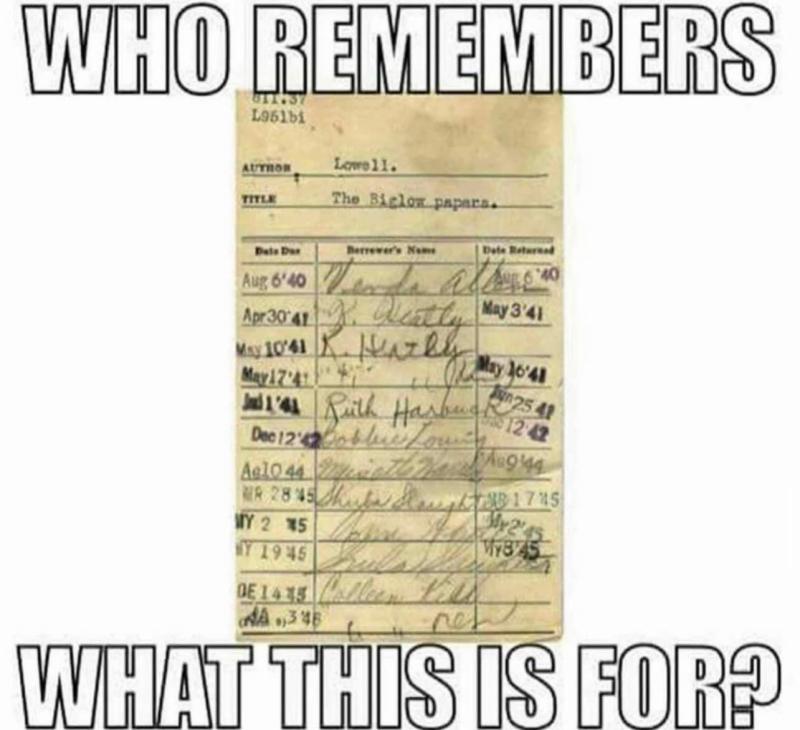 WHO REMEMBERS
811.37
L951bi
AUTHOR Lowell.
TITLE The Biglow papers.
Date Due Borrower's Name Date Returned
Aug 6'40 Aug 6 '40
Apr 30'41 May 3'41
May 10'41 K. Heatly
May 17'41 May 16'41
Jul 1'41 Ruth Jun 25 41
Dec 12'42 Bobbie Dec 12'42
Ag 10 44 Ag 9'44
MR 28'45 MR 17'45
MY 2 '45 My 2'45
MY 19 45 My 8'45
DE 14 45 Colleen
JA 3'46
WHAT THIS IS FOR?